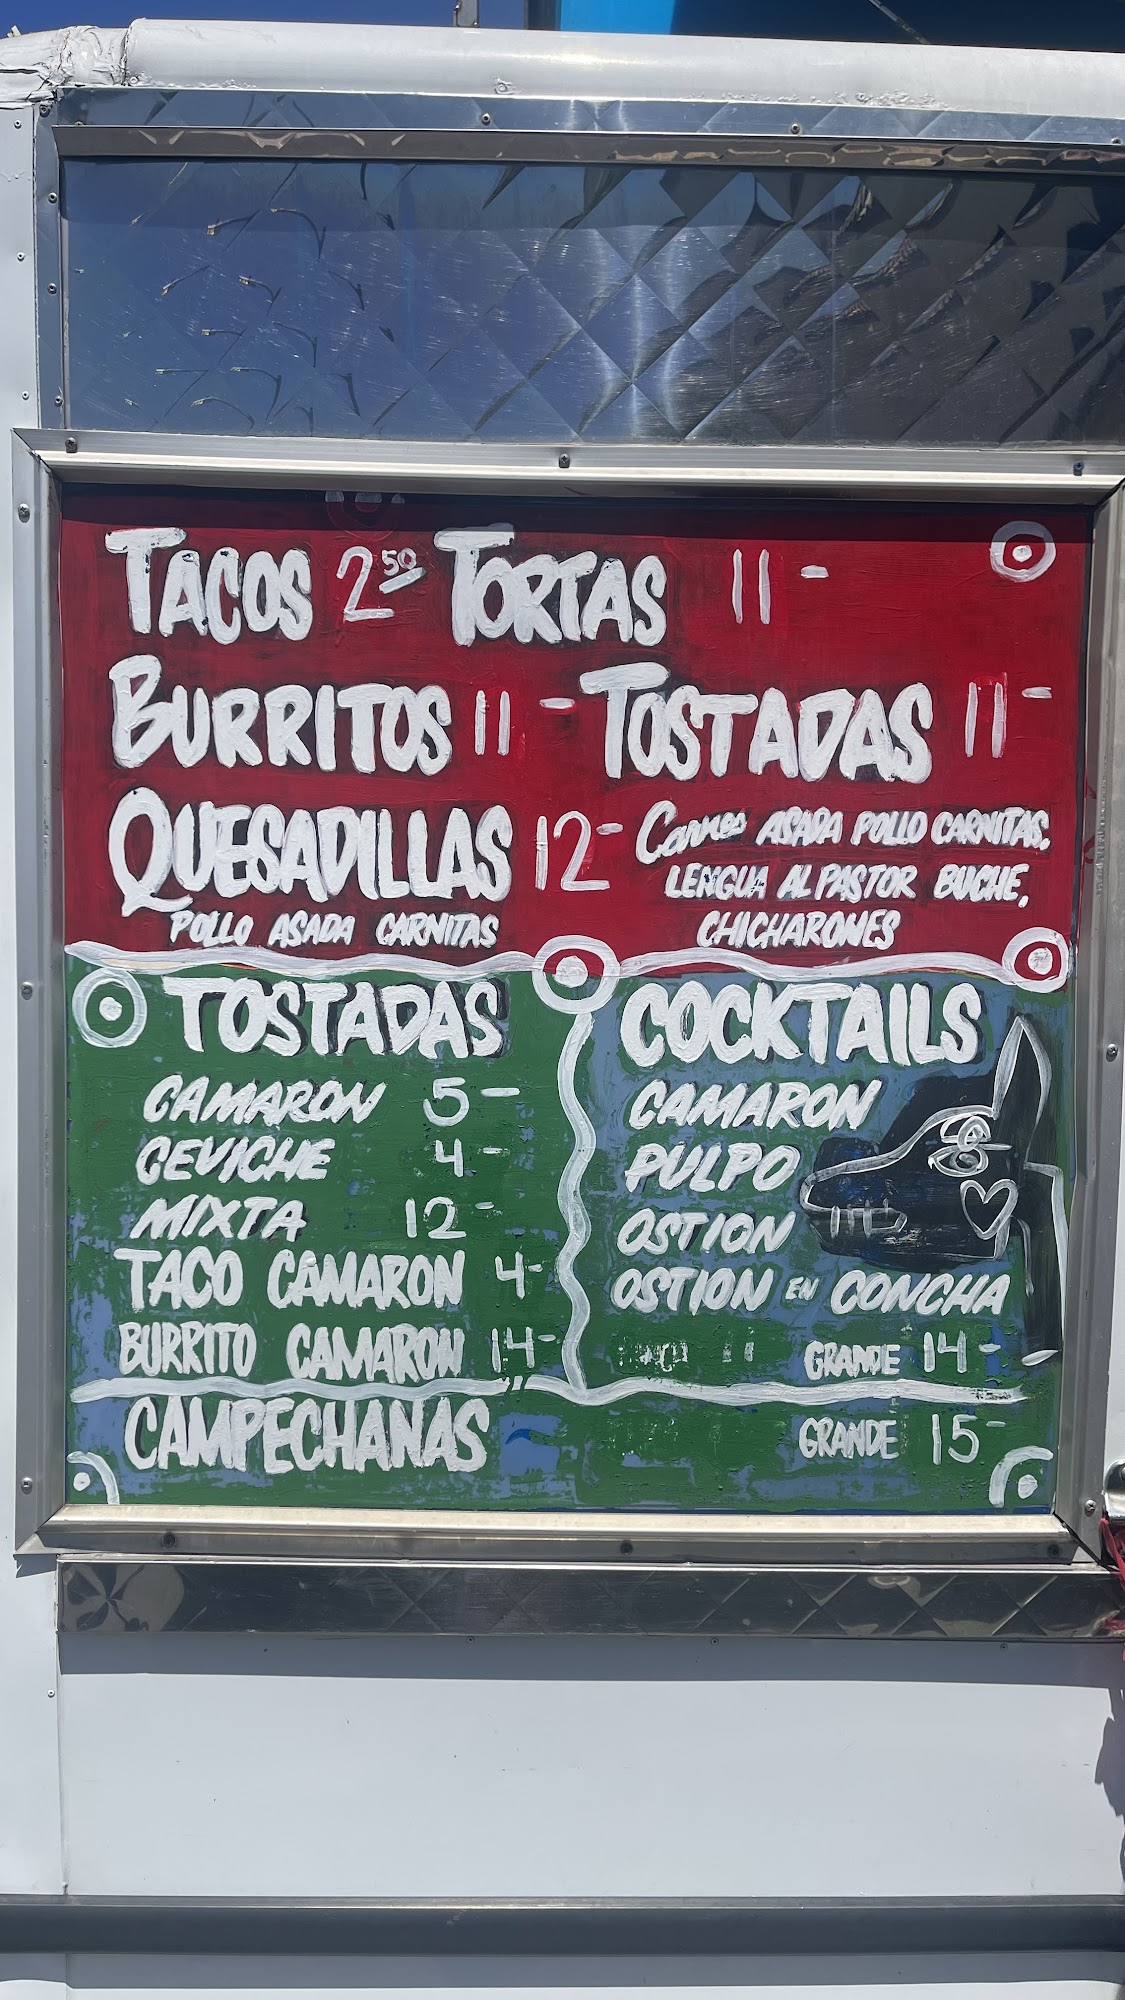 TACOS 2.50 TORTAS 11-
BURRITOS 11- TOSTADAS 11-
QUESADILLAS 12-
POLLO ASADA CARNITAS
Carnes ASADA POLLO CARNITAS.
LENGUA AL PASTOR BUCHE,
CHICHARONES
TOSTADAS
CAMARON 5-
CEVICHE 4-
MIXTA 12-
TACO CAMARON 4-
BURRITO CAMARON 14-
COCKTAILS
CAMARON
PULPO
OSTION
OSTION EN CONCHA
GRANDE 14-
CAMPECHANAS GRANDE 15-